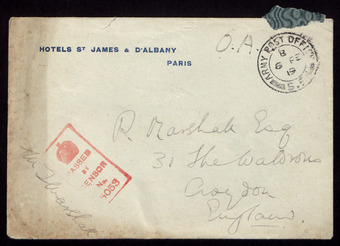 HOTELS ST JAMES & D'ALBANY
PARIS
O.A.
ARMY POST OFFICE
19
S.
R. Marshall Esq
31 The Waldrons
Croydon
England
PASSED
BY
CENSOR
No.
Marshall